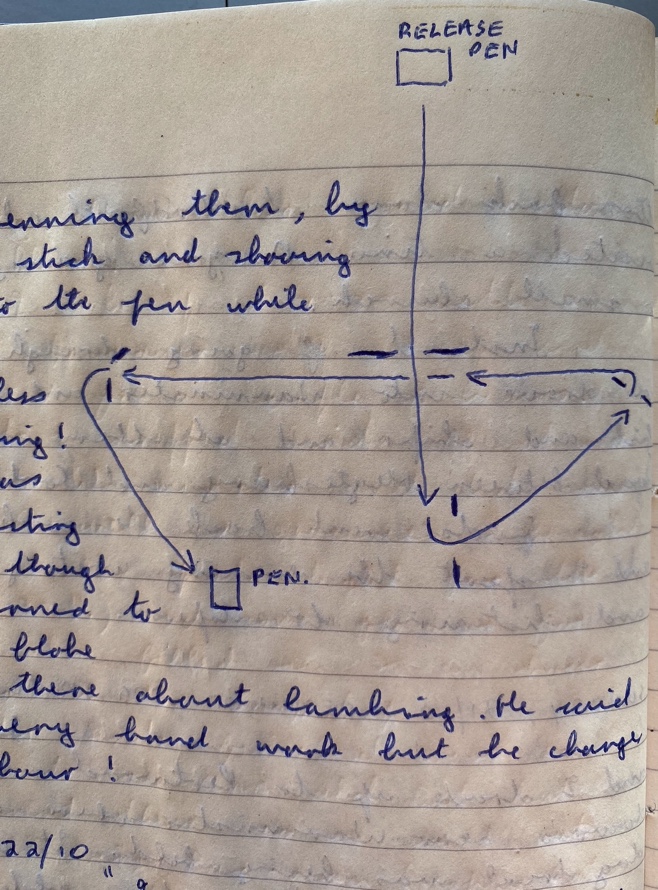 RELEASE
PEN
enning them, by
stick and shoving
to the pen while
less
ing!
as
sting
though
rned to
bloke
there about lambing. He said
very hard work but he charges
hour!
PEN.
22/10